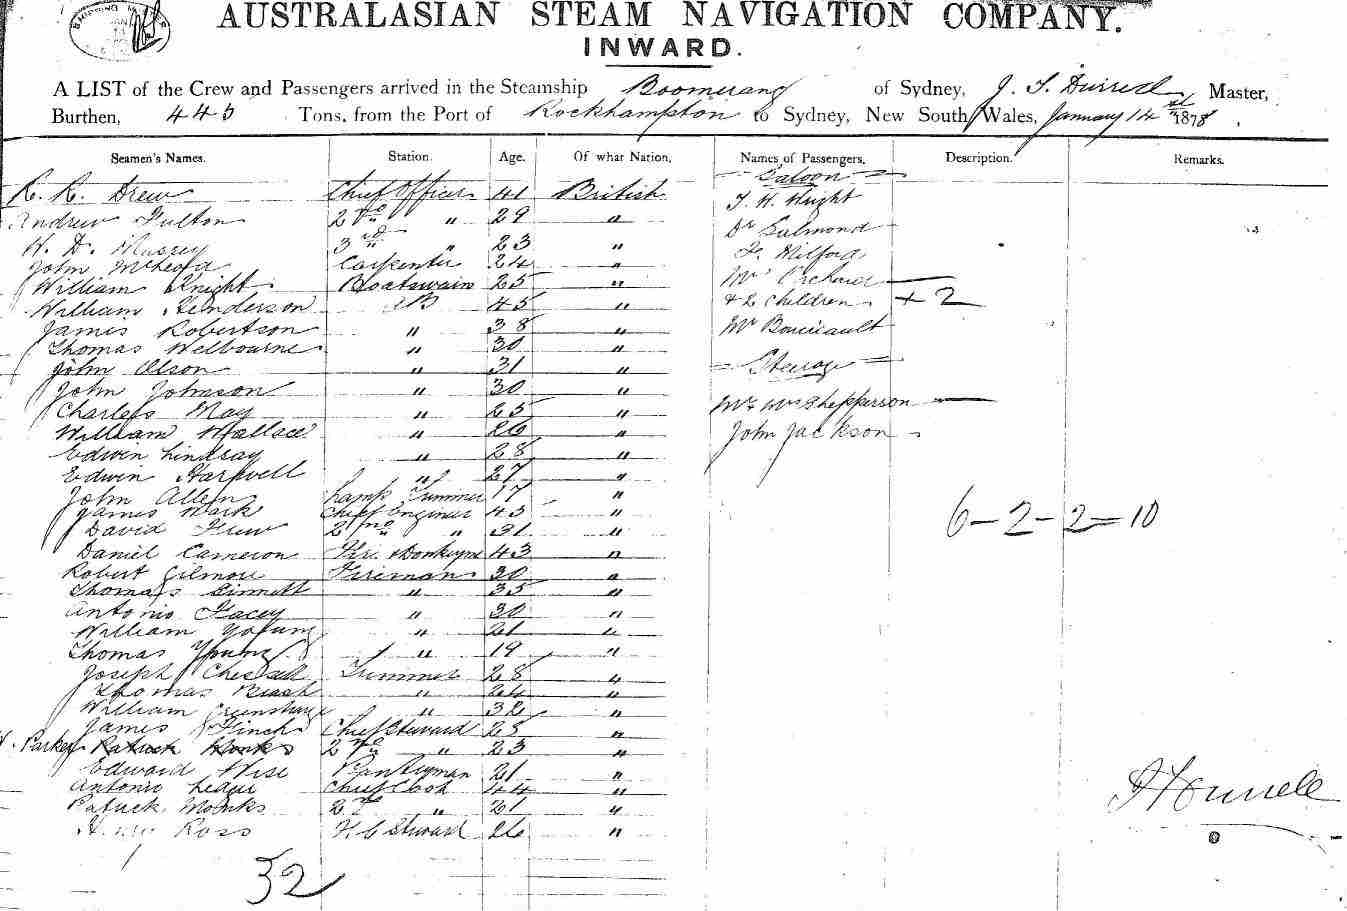 AUSTRALASIAN STEAM NAVIGATION COMPANY.
INWARD.
A LIST of the Crew and Passengers arrived in the Steamship Boomerang of Sydney, Master,
Burthen, 443 Tons, from the Port of Rockhampton to Sydney, New South Wales, January 14 1878.
Seamen's Names. Station. Age. Of what Nation, Names of Passengers, Description. Remarks.
Saloon
R. R. Drew Chief Officer 41 British
Andrew Fulton 2nd " 29 " T. H.
W. D. 3rd " 23 " Dr Salmond
John McLeod Carpenter 24 " Milford
William Knight Boatswain 25 " Mrs
William Henderson AB 45 " & 2 Children + 2
James Robertson " 38 " Mr Boucicault
Thomas Welbourne " 30 "
John Olson " 31 " Steerage
John Johnson " 30 "
Charles May " 25 " Mr Mrs Shepperson
William Wallace " 26 " John Jackson
Edwin Lindsay " 28 "
Edwin Hartwell " 27 "
John Allen Lamp Trimmer 17 "
James Wark Chief Engineer 43 " 6-2-2=10
David Frew 2nd " 31 "
Daniel Cameron 43 "
Robert Gilmore Fireman 30 "
Thomas Sinnett " 35 "
Antonio Facey " 30 "
William Young " 21 "
Thomas Young " 19 "
Joseph Trimmer 28 "
Thomas " 24 "
William " 32 "
James Finch Chief Steward 28 "
Parker Patrick Monks 2nd " 23 "
Edward Wise Pantryman 21 "
Antonio Chief Cook 44 "
Patrick Monks 2nd " 21 "
Ross Steward 26 "
32